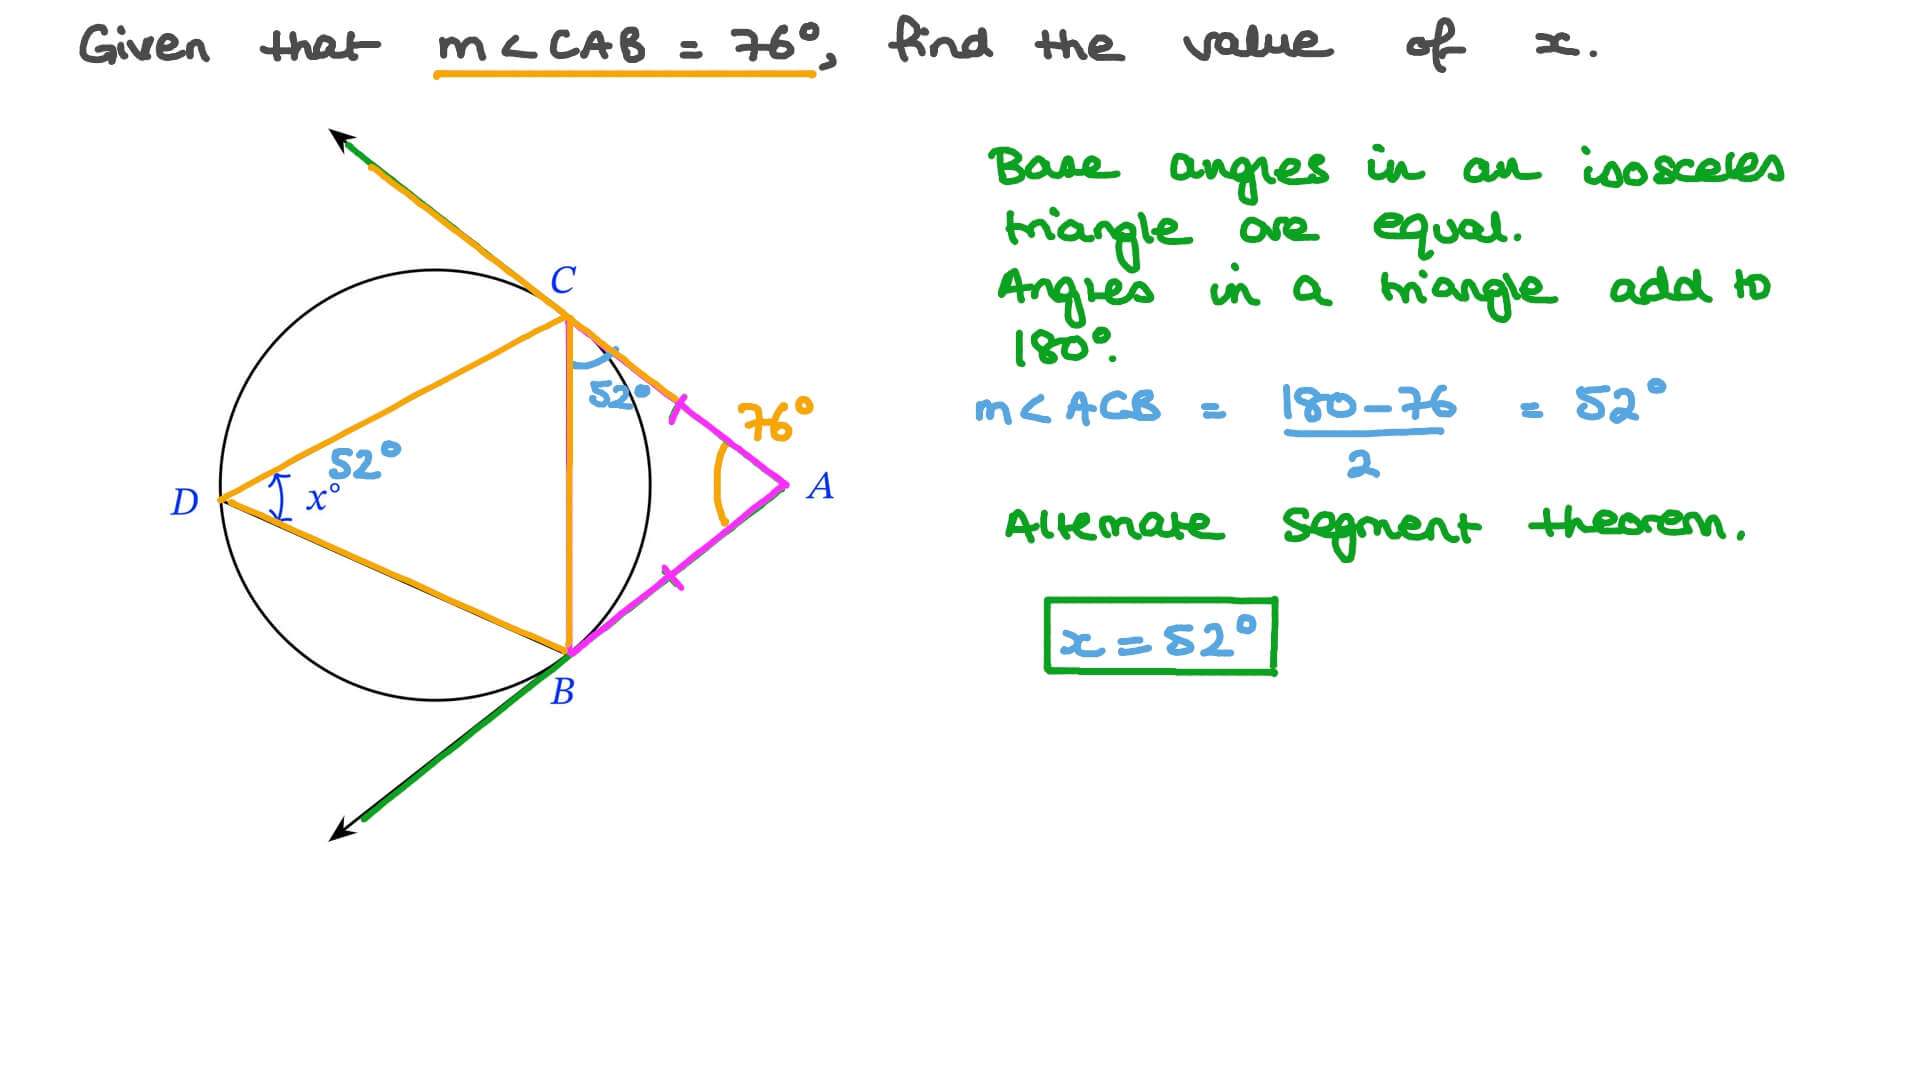 Given that m<CAB = 76°, find the value of x.
Base angles in an isosceles
triangle are equal.
Angles in a triangle add to
180°.
m<ACB = 180-76 / 2 = 52°
Alternate segment theorem.
x = 52°
C
52°
76°
A
52°
D
x°
B